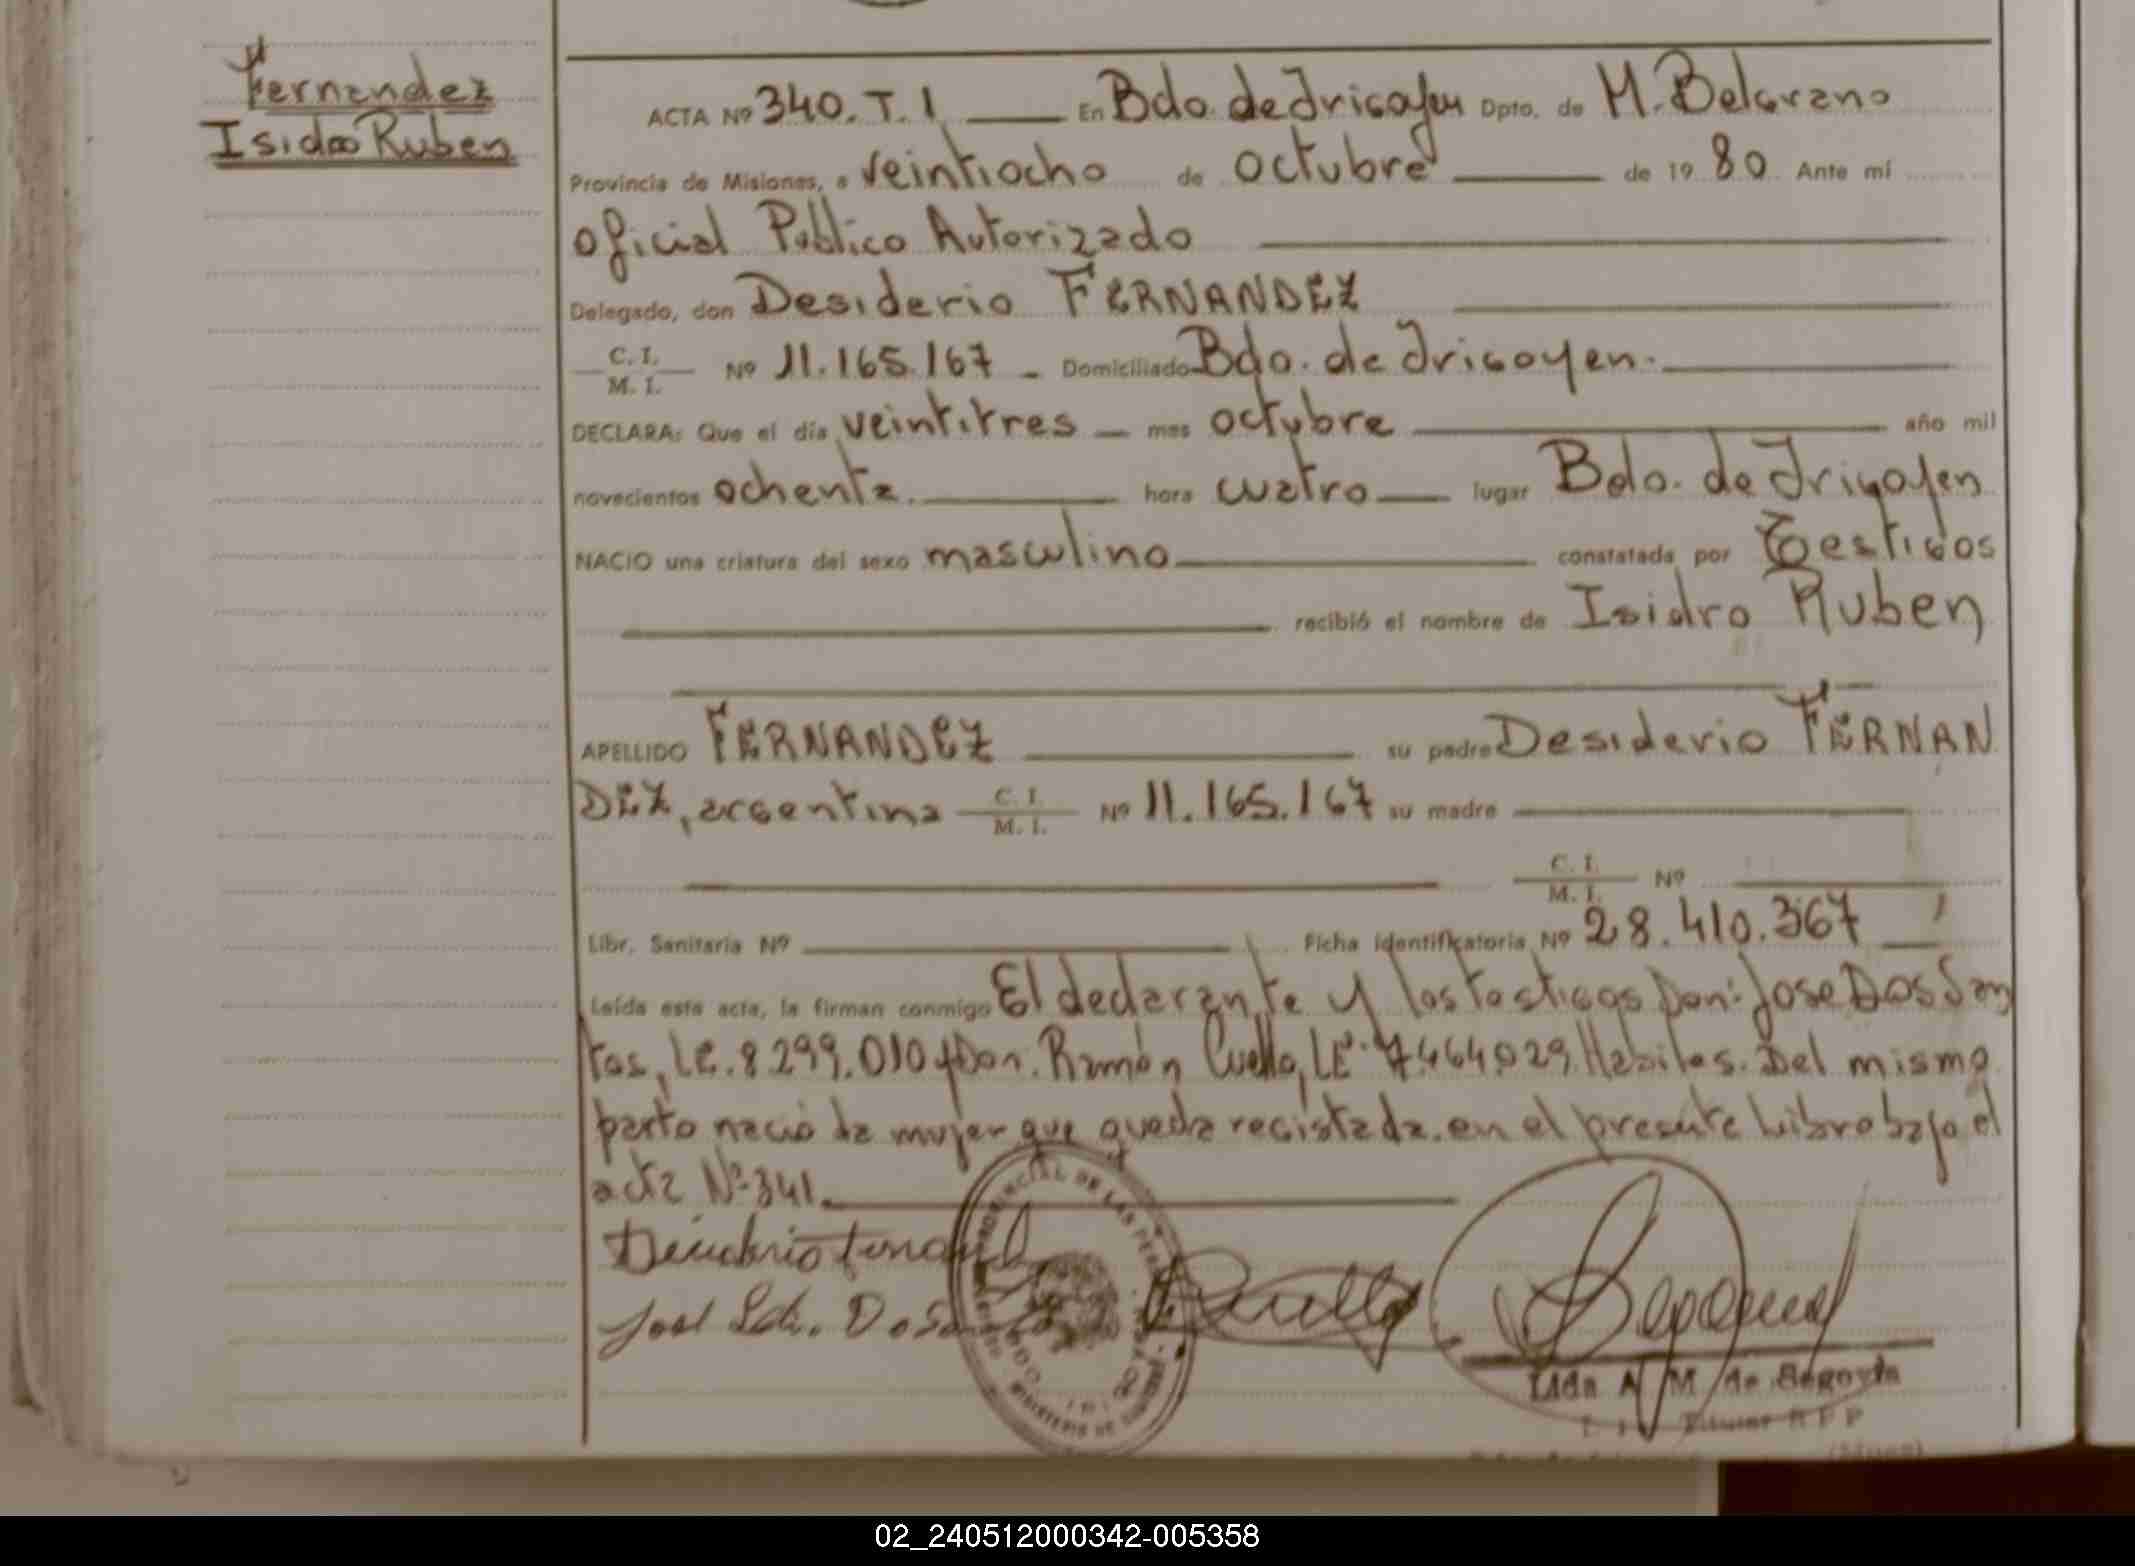 Fernandez
Isidro Ruben
ACTA Nº 340. T. 1 En Bdo. de Irigoyen Dpto. de M. Belgrano
Provincia de Misiones, a veintiocho de octubre de 19 80 Ante mí
Oficial Publico Autorizado
Delegado, don Desiderio FERNANDEZ
C. I.
M. I.
Nº 11.165.167 - Domiciliado Bdo. de Irigoyen.
DECLARA: Que el día veintitres mes octubre año mil
novecientos ochenta. hora cuatro lugar Bdo. de Irigoyen
NACIO una criatura del sexo masculino constatada por Testigos
recibió el nombre de Isidro Ruben
APELLIDO FERNANDEZ su padre Desiderio FERNAN
DEZ, argentina C. I. M. I. Nº 11.165.167 su madre
C. I. M. I. Nº
Libr. Sanitaria Nº Ficha identificatoria Nº 28.410.367
Leída esta acta, la firman conmigo El declarante y los testigos Don: Jose Dos San
tos, LE. 8.299.010 y Don. Ramón Cuello, LE. 7.464.029. Habiles. Del mismo
parto nació la mujer que queda registada en el presente Libro bajo el
acta Nº 341.
PROVINCIAL DE LAS PER
Lida A M de Segovia
Titular R P P
02_240512000342-005358